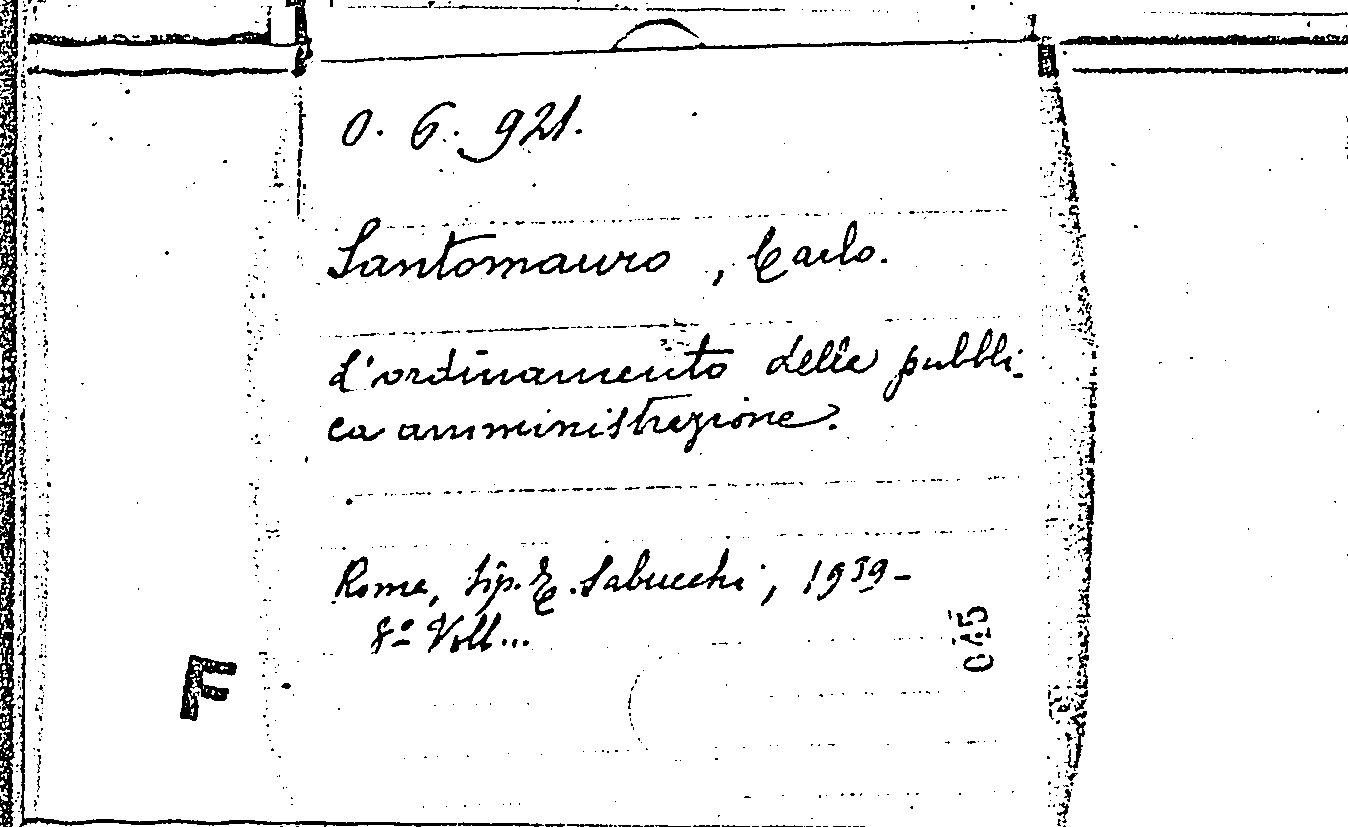 O. 6. 921.
Santomauro, Carlo.
L'ordinamento della pubbli-
ca amministrazione.
Roma, tip. E. Sabucchi, 1939-
8º Voll...
045
F